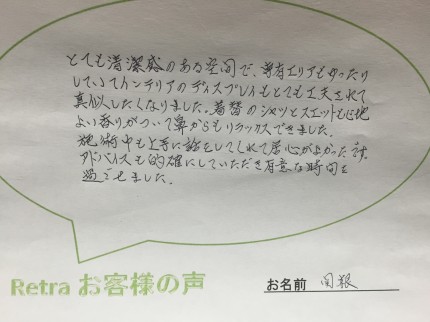 とても清潔感のある空間で、専有エリアもゆったり
していてインテリアのディスプレイもとても工夫されて
真似したくなりました。着替のシャツとスエットも心地
よい香りがついて鼻からもリラックスできました。
施術中も上手に話をしてくれて居心が良かったです。
アドバイスも的確にしていただき有意な時間を
過ごせました。
Retra お客様の声
お名前